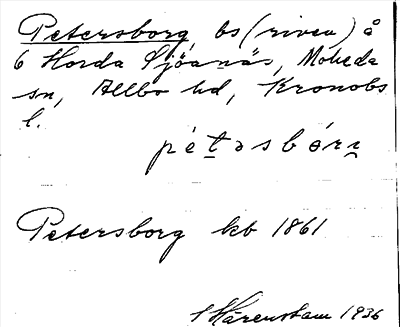 Petersborg, bs (riven) å
6 Horda Sjöanäs, Moheda
sn, Allbo hd, Kronobs
l.
pétasbórꞃ
Petersborg kb 1861
S Härenstam 1936